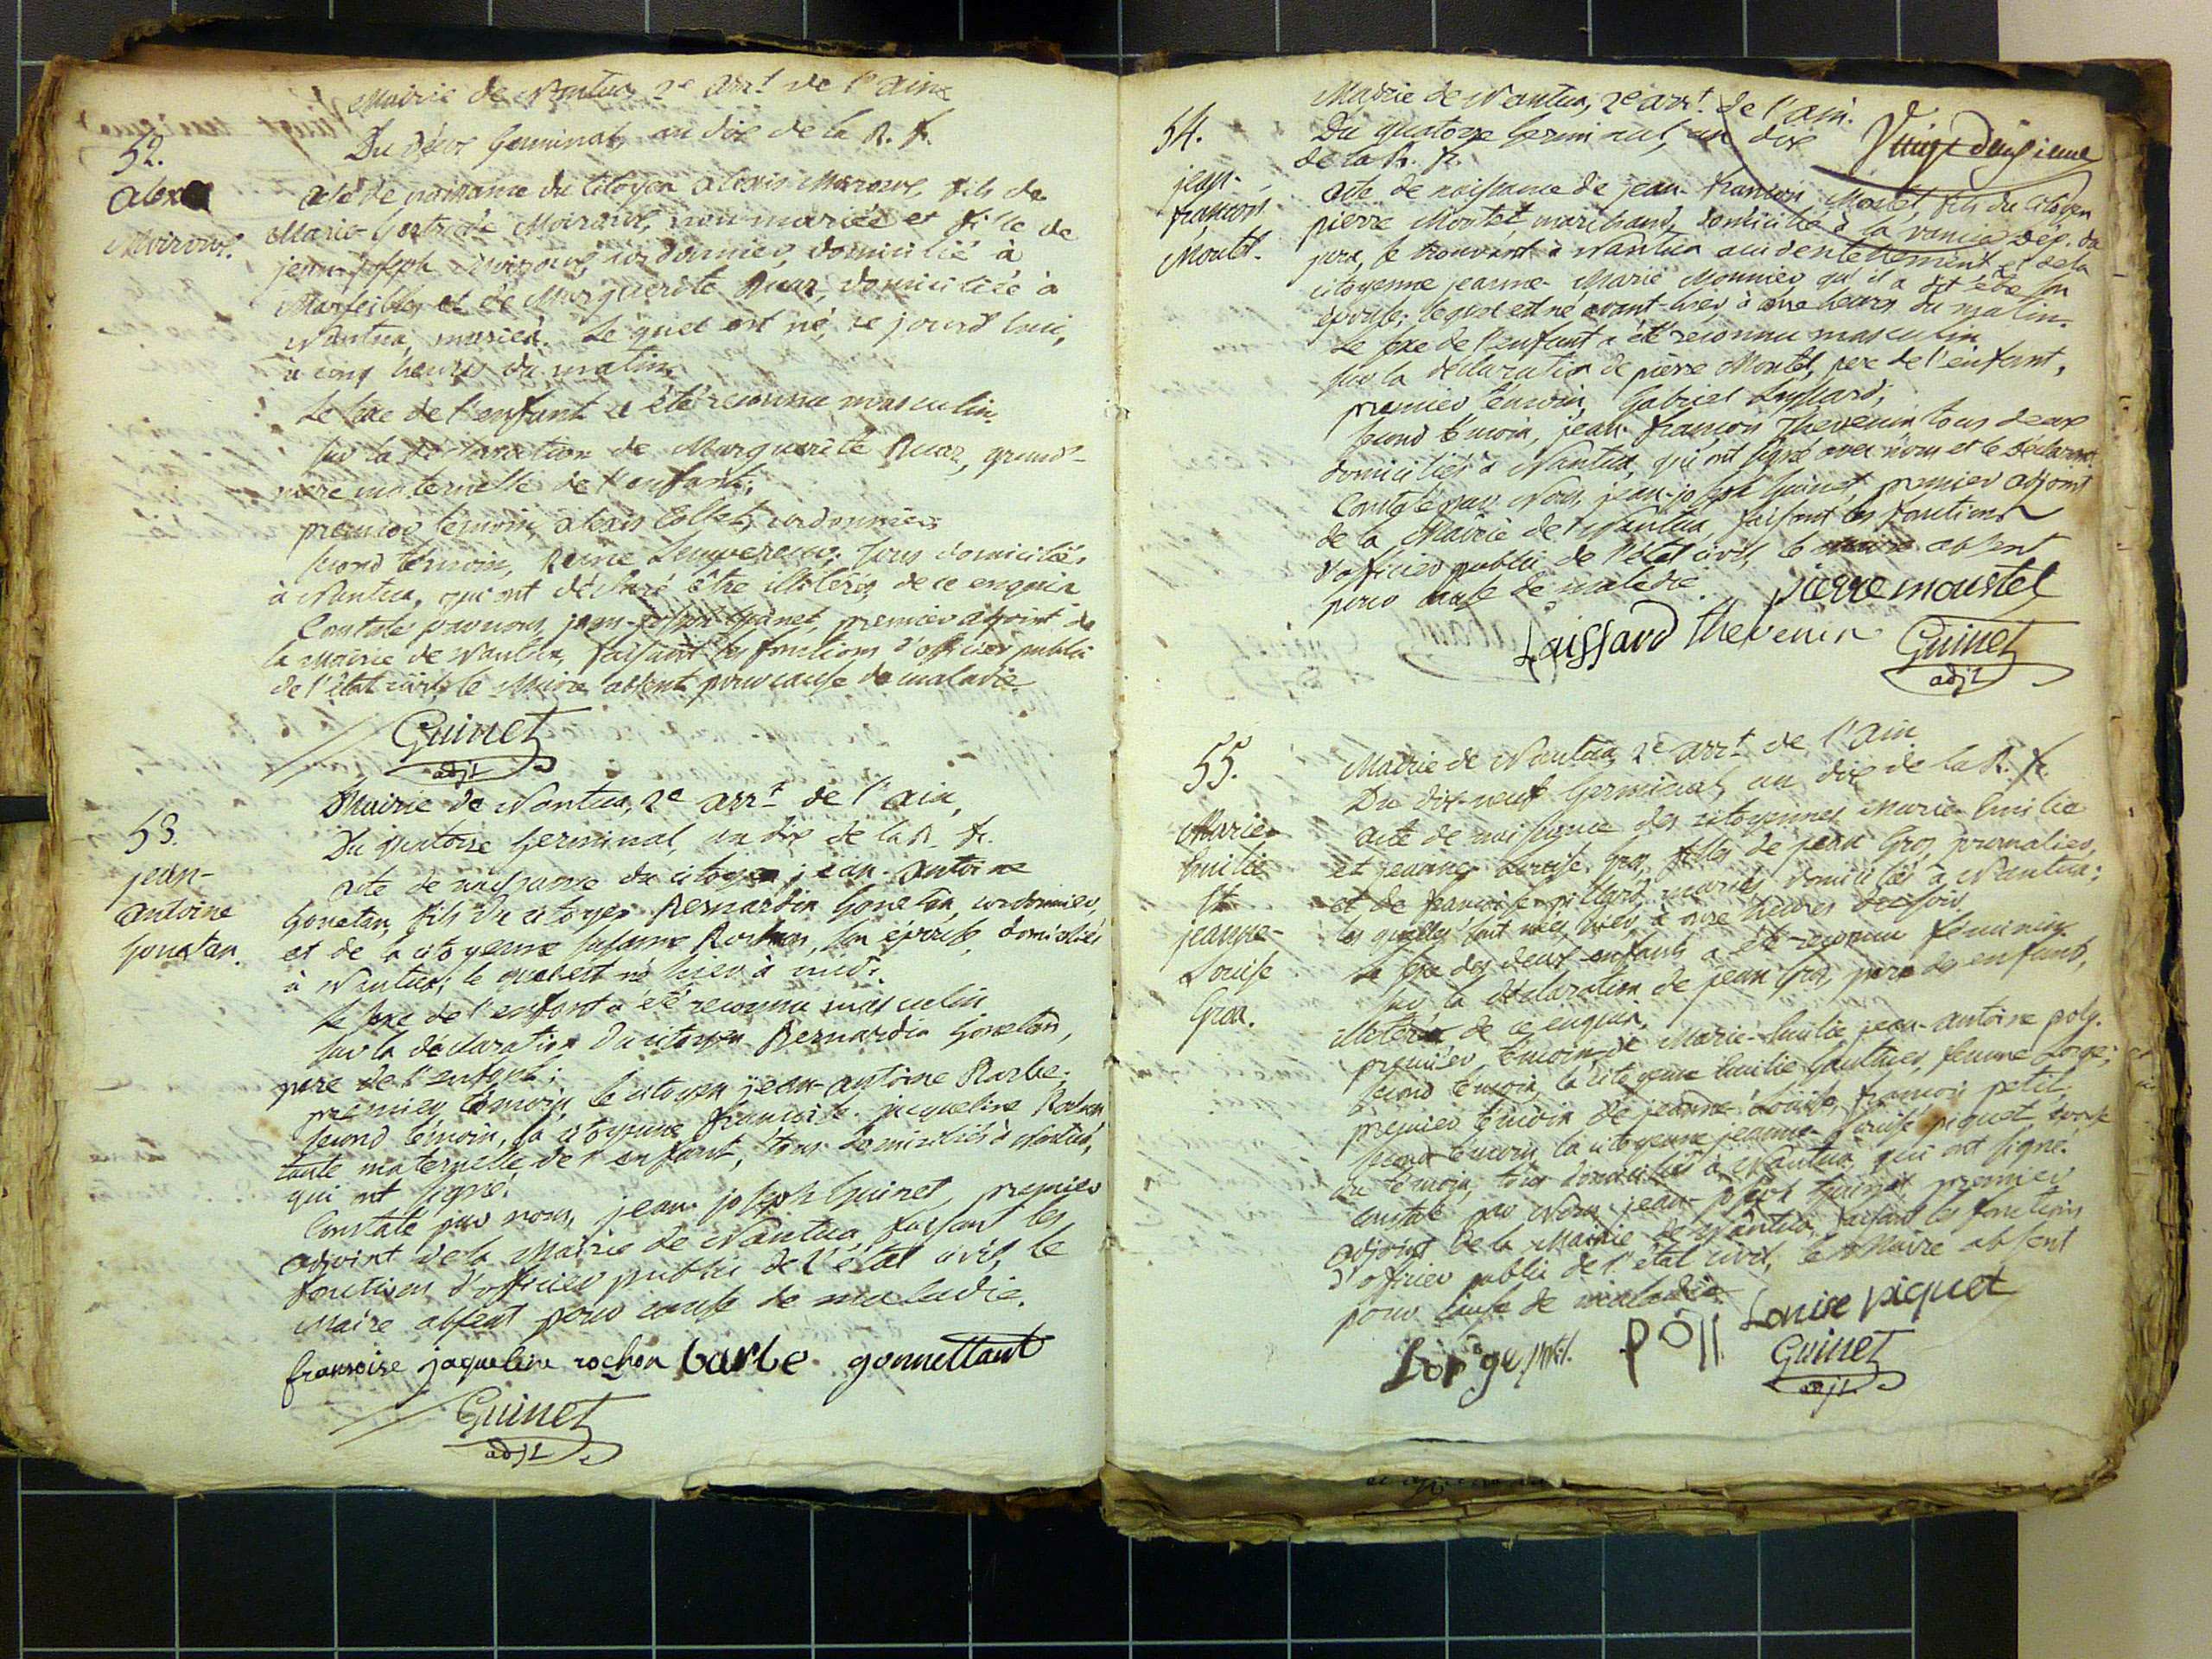 Mairie de Nantua, 2e arr.t de l'ain
52.
Du douze Germinal, an dix de la R. fr.
alexis
Moiroux.
acte de naissance du citoyen alexis Moiroux, fils de
Marie-Gertrude Moiroux, non mariée et fille de
jean-joseph Moiroux, cordonnier, domicilié à
Marseille, et de Marguerite Ruaz, domiciliée à
Nantua, mariés. Le quel est né, ce jourd'hui,
à cinq heures du matin.
Le sexe de l'enfant a été reconnu masculin.
sur la déclaration de Marguerite Ruaz, grand-
mere maternelle de l'enfant;
premier témoin, alexis Collet, cordonnier;
second témoin, Reine; tous domiciliés
à Nantua, qui ont déclaré être illiterés, de ce enquis
Constaté par nous, jean-joseph Guinet, premier adjoint de
la Mairie de Nantua, faisant les fonctions d'officier public
de l'état civil, le Maire absent pour cause de maladie.
Guinet
adjt
Mairie de Nantua, 2e arr.t de l'ain,
53.
Du quatorze Germinal, an dix de la R. fr.
jean-
antoine
Gonetan.
acte de naissance du citoyen jean-antoine
Gonetan, fils du citoyen Bernardin Gonetan, cordonnier,
et de la citoyenne susanne Rochon, son épouse, domiciliés
à Nantua; le quel est né hier à midi.
Le sexe de l'enfant a été reconnu masculin
sur la déclaration du citoyen Bernardin Gonetan,
pere de l'enfant;
premier témoin, le citoyen jean-antoine Barbe;
second témoin, la citoyenne francoise-jacqueline Rochon
tante maternelle de l'enfant, tous domiciliés à Nantua,
qui ont signé.
Constaté par nous, jean-joseph Guinet, premier
adjoint de la Mairie de Nantua, faisant les
fonctions d'officier public de l'état civil, le
Maire absent pour cause de maladie.
fransoise jaqueline rochon barbe gonnettant
Guinet
adjt
Mairie de Nantua, 2e arr.t de l'ain.
Vingt deuxieme
54.
Du quatorze Germinal, an dix
de la R. fr.
jean-
françois
Moutel.
acte de naissance de jean-françois Moutel, fils du citoyen
pierre Moutel, marchand, domicilié à la dép. du
jura, se trouvant à Nantua accidentellement, et de la
citoyenne jeanne-Marie Monnier, qu'il a dit être son
épouse; le quel est né avant-hier à onze heures du matin.
Le sexe de l'enfant a été reconnu masculin
sur la déclaration de pierre Moutel, pere de l'enfant,
premier témoin, Gabriel Laissard;
second témoin, jean-françois Thevenin tous deux
domiciliés à Nantua, qui ont signé avec nous et le déclarant.
Constaté par Nous, jean-joseph Guinet, premier adjoint
de la Mairie de Nantua, faisant les fonctions
d'officier public de l'état civil, le Maire absent
pour cause de maladie.
pierre moustel
Laissard thevenin Guinet
adjt
55.
Mairie de Nantua, 2e arr.t de l'ain
Du dix-neuf Germinal, an dix de la R. fr.
Marie-
Emilie
et
jeanne-
Louise
Gros.
acte de naissance des citoyennes Marie-Emilie
et jeanne-Louise Gros, filles de jean Gros, journalier,
et de francoise pillard, mariés, domiciliés à Nantua;
les quelles sont nées, hier, à onze heures du soir.
Le sexe des deux enfants a été reconnu féminin
sur la déclaration de jean Gros, pere des enfants,
illiteré de ce enquis.
premier témoin de Marie-Emilie, jean-antoine poly.
second témoin, la citoyenne Emilie Gauthier, femme Lorge;
premier témoin de jeanne-Louise, françois petit,
second témoin, la citoyenne jeanne-Louise piquet, épouse
du témoin, tous domiciliés à Nantua, qui ont signé.
constaté par Nous, jean-joseph Guinet, premier
adjoint de la Mairie de Nantua, faisant les fonctions
d'officier public de l'état civil, le Maire absent
pour cause de maladie.
Lorge petit. poli Louise piquet
Guinet
adjt.